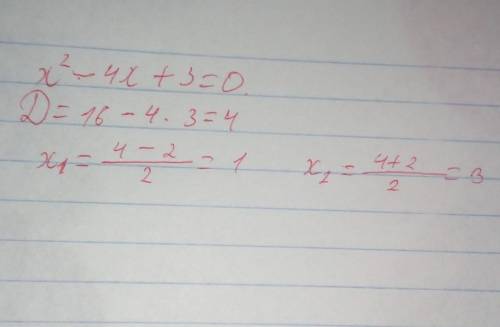 x² - 4x + 3 = 0.
D = 16 - 4 · 3 = 4
x₁ = (4 - 2)/2 = 1 x₂ = (4 + 2)/2 = 3